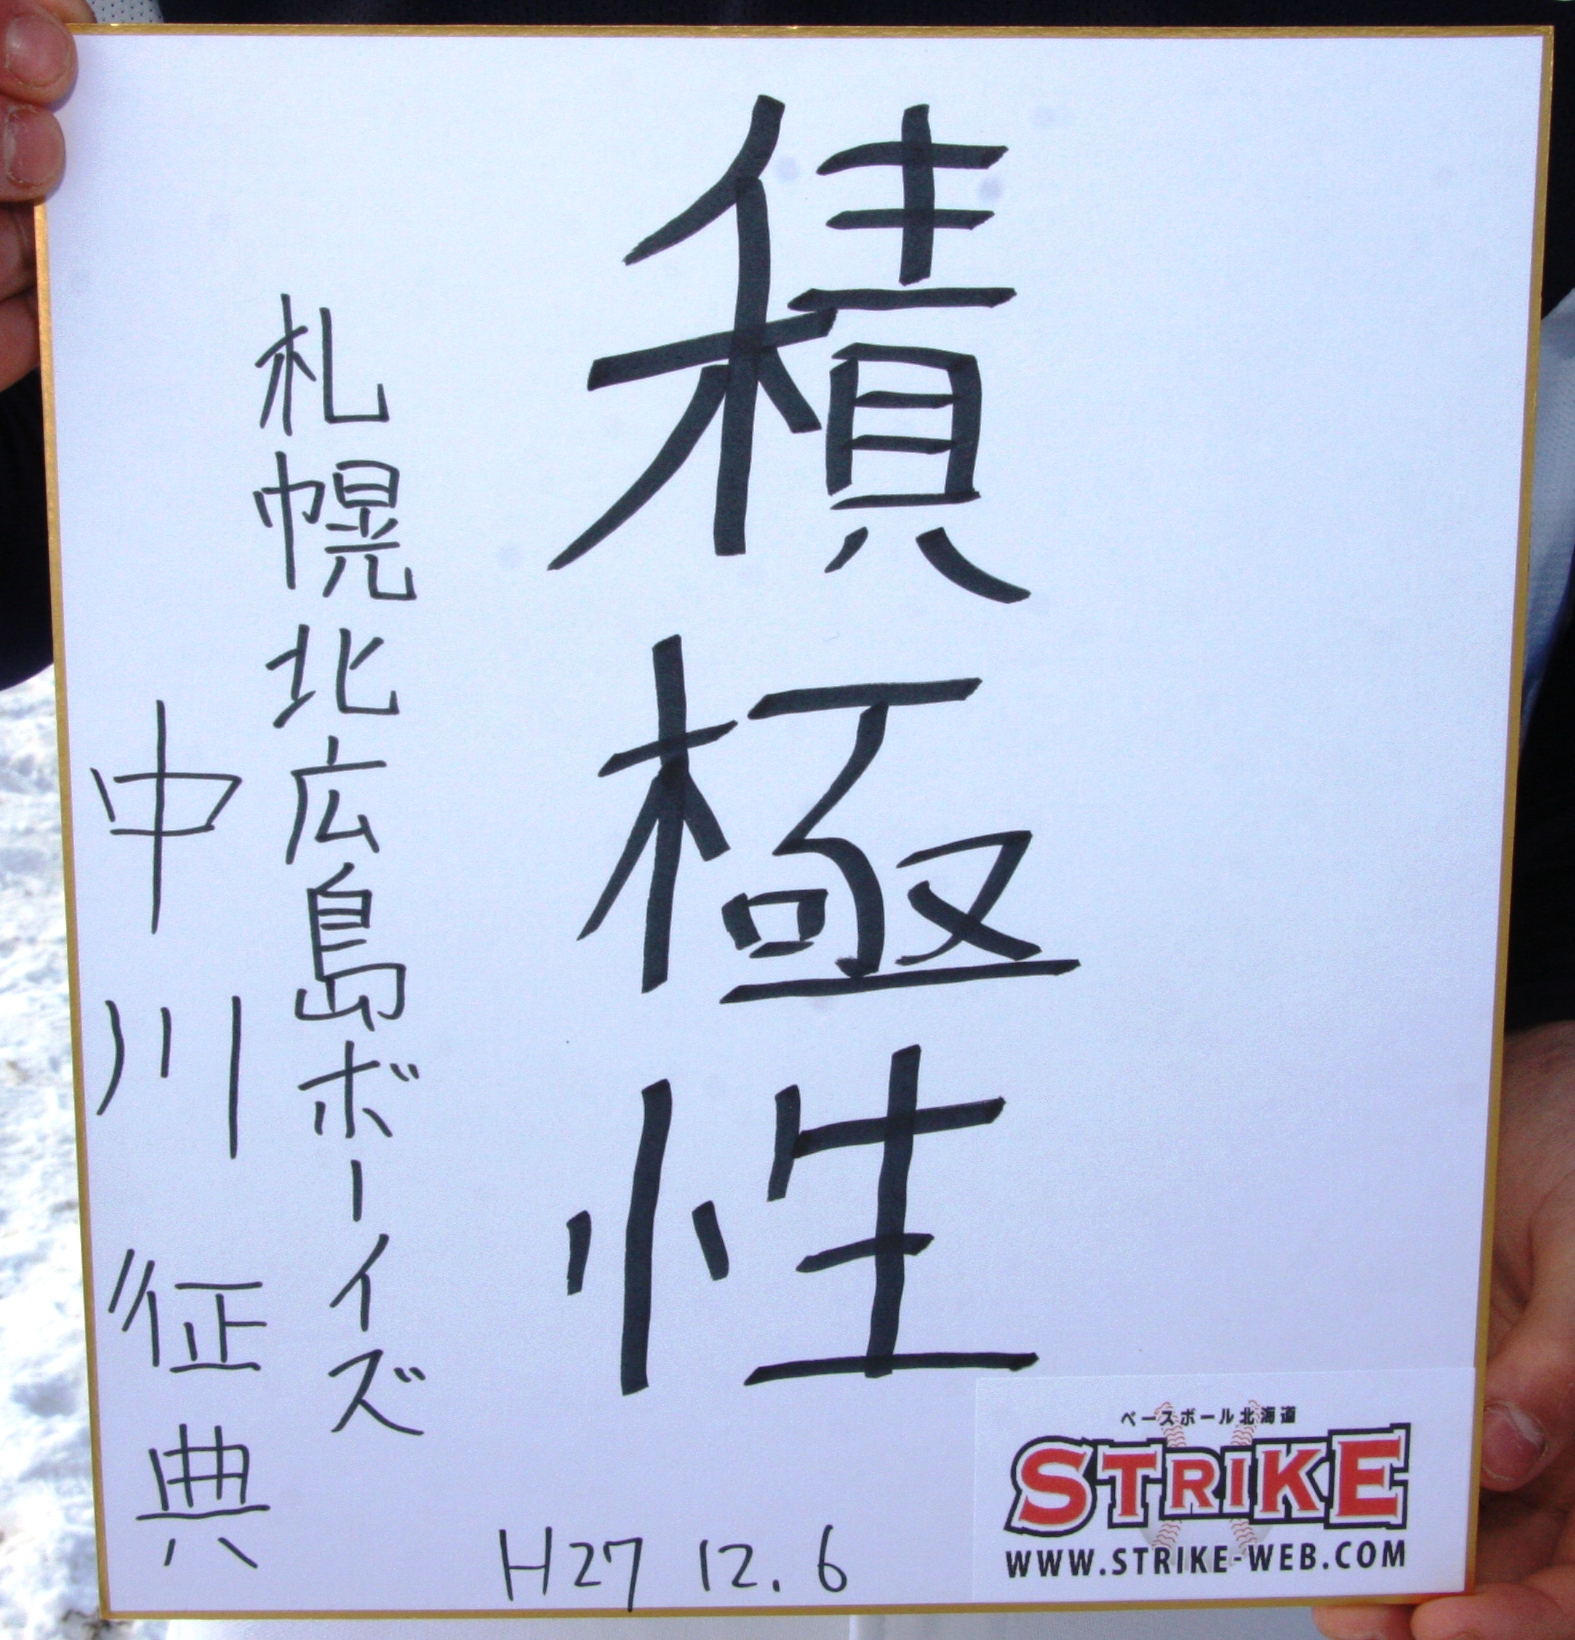 積極性
札幌北広島ボーイズ
中川征典
H27 12.6
ベースボール北海道
STRIKE
WWW.STRIKE-WEB.COM